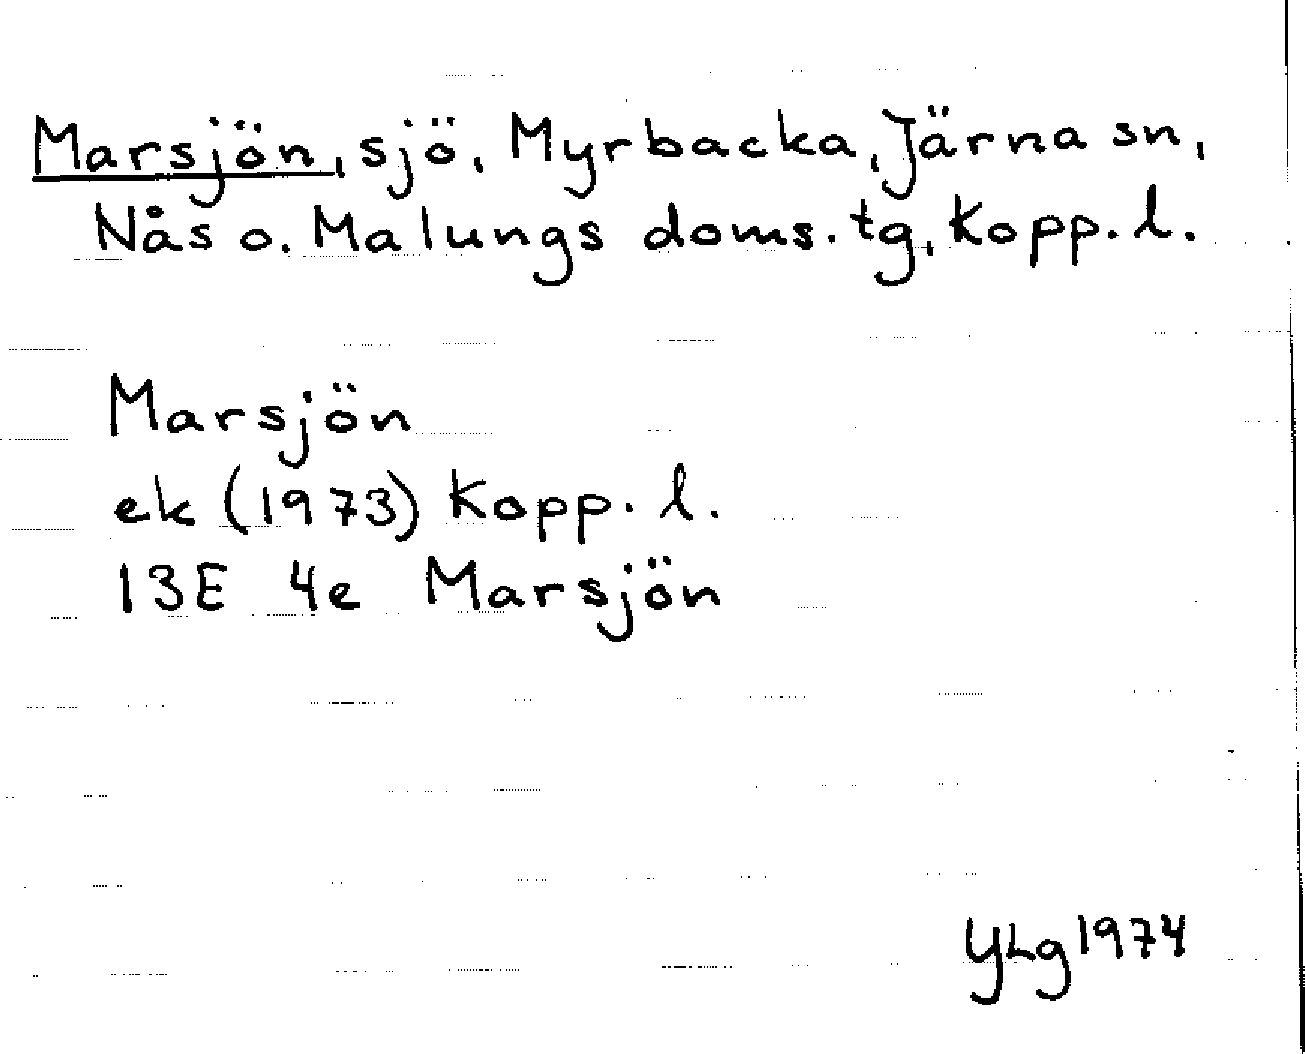 Marsjön, sjö, Myrbacka, Järna sn,
Nås o. Malungs doms. tg, Kopp. l.
Marsjön
ek (1973) Kopp. l.
13E 4e Marsjön
YLg 1974